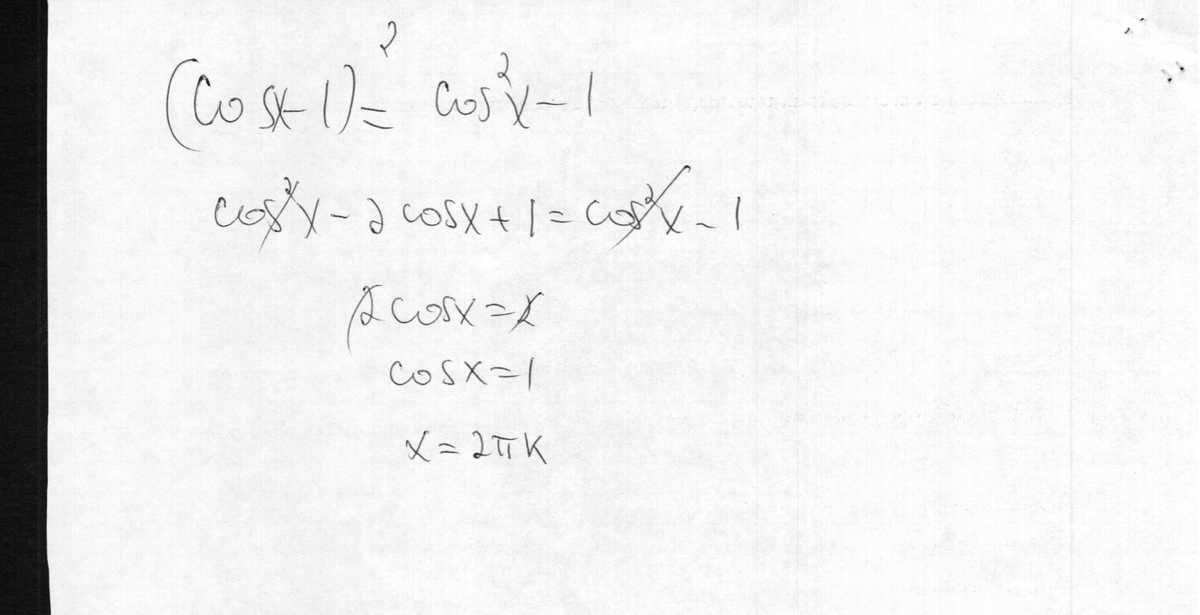 (cosx-1)² = cos²x - 1
cos²x - 2 cosx + 1 = cos²x - 1
2 cosx = 2
cosx = 1
x = 2πk